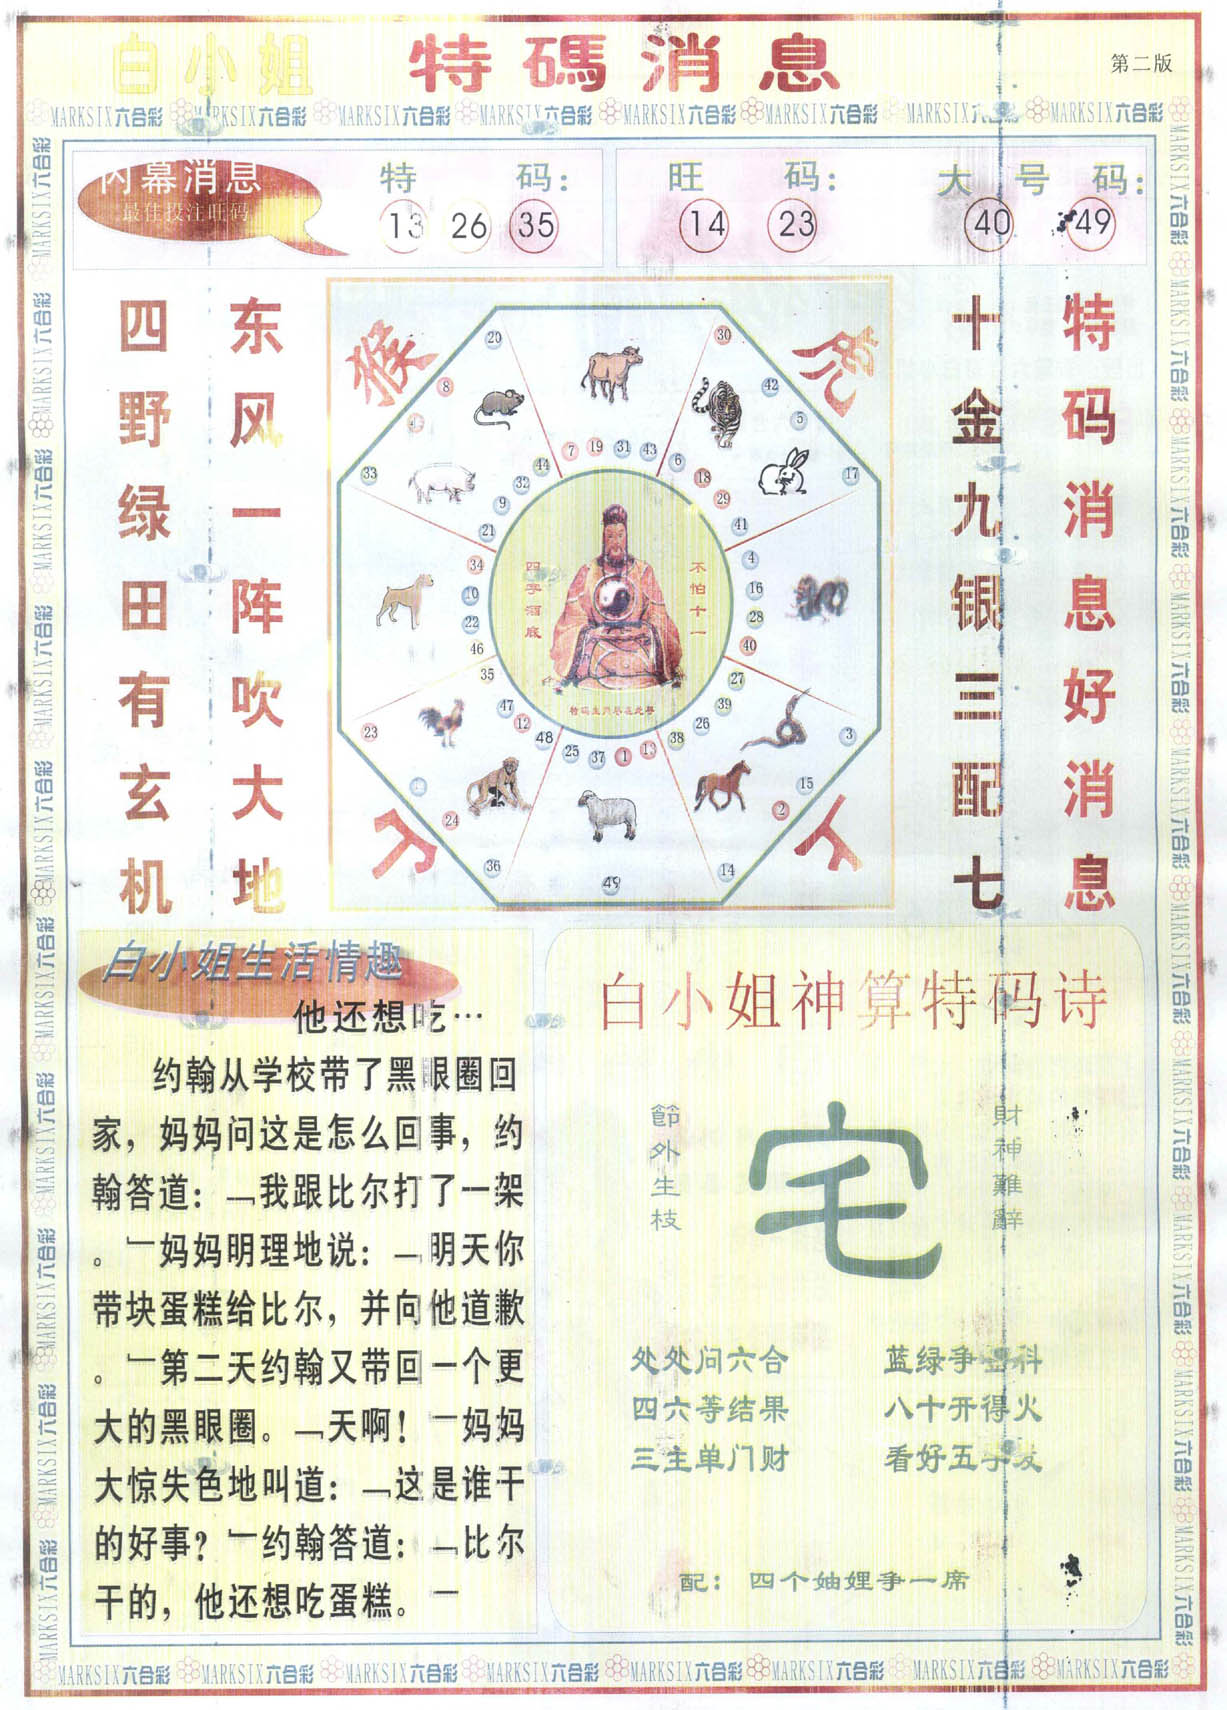 白小姐 特碼消息
第二版
MARKSIX六合彩 MARKSIX六合彩 MARKSIX六合彩 MARKSIX六合彩 MARKSIX六合彩 MARKSIX六合彩 MARKSIX六合彩 MARKSIX六合彩
内幕消息
最佳投注旺码
特码：
13 26 35
旺码：
14 23
大号码：
40 49
特码消息好消息
十金九银三配七
东风一阵吹大地
四野绿田有玄机
猴
虎
20
8
33
30
42
5
17
7 19 31 43
6 18 29 41
44 32 9 21
34 10 22 46
4 16 28 40
35 47 12 48
25 37 1 13
38 26 39 27
23
24
36
49
14
2
15
3
不怕十一
白小姐生活情趣
他还想吃…
约翰从学校带了黑眼圈回
家，妈妈问这是怎么回事，约
翰答道：﹁我跟比尔打了一架
。﹂妈妈明理地说：﹁明天你
带块蛋糕给比尔，并向他道歉
。﹂第二天约翰又带回一个更
大的黑眼圈。﹁天啊！﹂妈妈
大惊失色地叫道：﹁这是谁干
的好事？﹂约翰答道：﹁比尔
干的，他还想吃蛋糕。﹂
白小姐神算特码诗
財神難辭
宅
節外生枝
处处问六合 蓝绿争 科
四六等结果 八十开得火
三主单门财 看好五字发
配：四个妯娌争一席
MARKSIX六合彩 MARKSIX六合彩 MARKSIX六合彩 MARKSIX六合彩 MARKSIX六合彩 MARKSIX六合彩 MARKSIX六合彩 MARKSIX六合彩